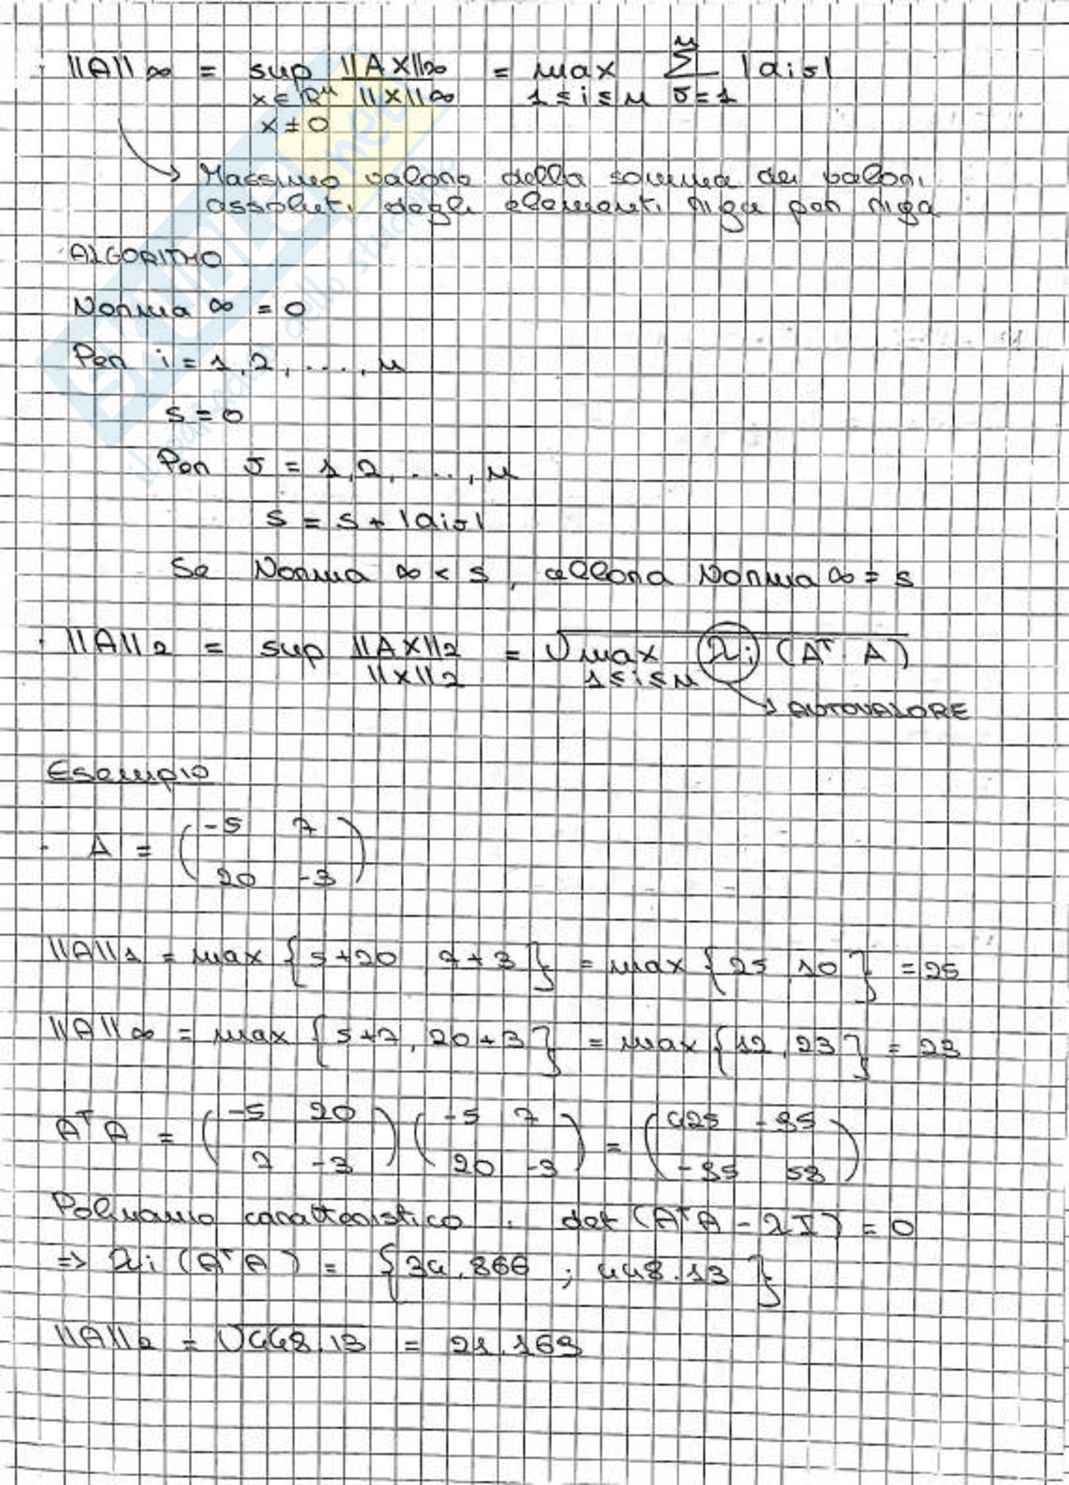 · ||A||∞ = sup ||Ax||∞ / ||x||∞ = max Σ |aij|
x ∈ Rⁿ 1 ≤ i ≤ n j=1 n
x ≠ 0
→ Massimo valore della somma dei valori
assoluti degli elementi riga per riga
ALGORITMO
Norma ∞ = 0
Per i = 1, 2, ...., n
s = 0
Per J = 1, 2, ...., n
s = s + |aij|
Se Norma ∞ < s, allora Norma ∞ = s
· ||A||2 = sup ||Ax||2 / ||x||2 = √max λi (Aᵀ · A)
1 ≤ i ≤ n
→ AUTOVALORE
Esempio
· A = (-5 7
20 -3)
||A||1 = max {5+20 7+3} = max {25, 10} = 25
||A||∞ = max {5+7, 20+3} = max {12, 23} = 23
AᵀA = (-5 20 (-5 7 = (425 -95
7 -3) 20 -3) -95 58)
Polinomio caratteristico . det (AᵀA - λI) = 0
=> λi (AᵀA) = {34.866 ; 448.13}
||A||2 = √448.13 = 21.169